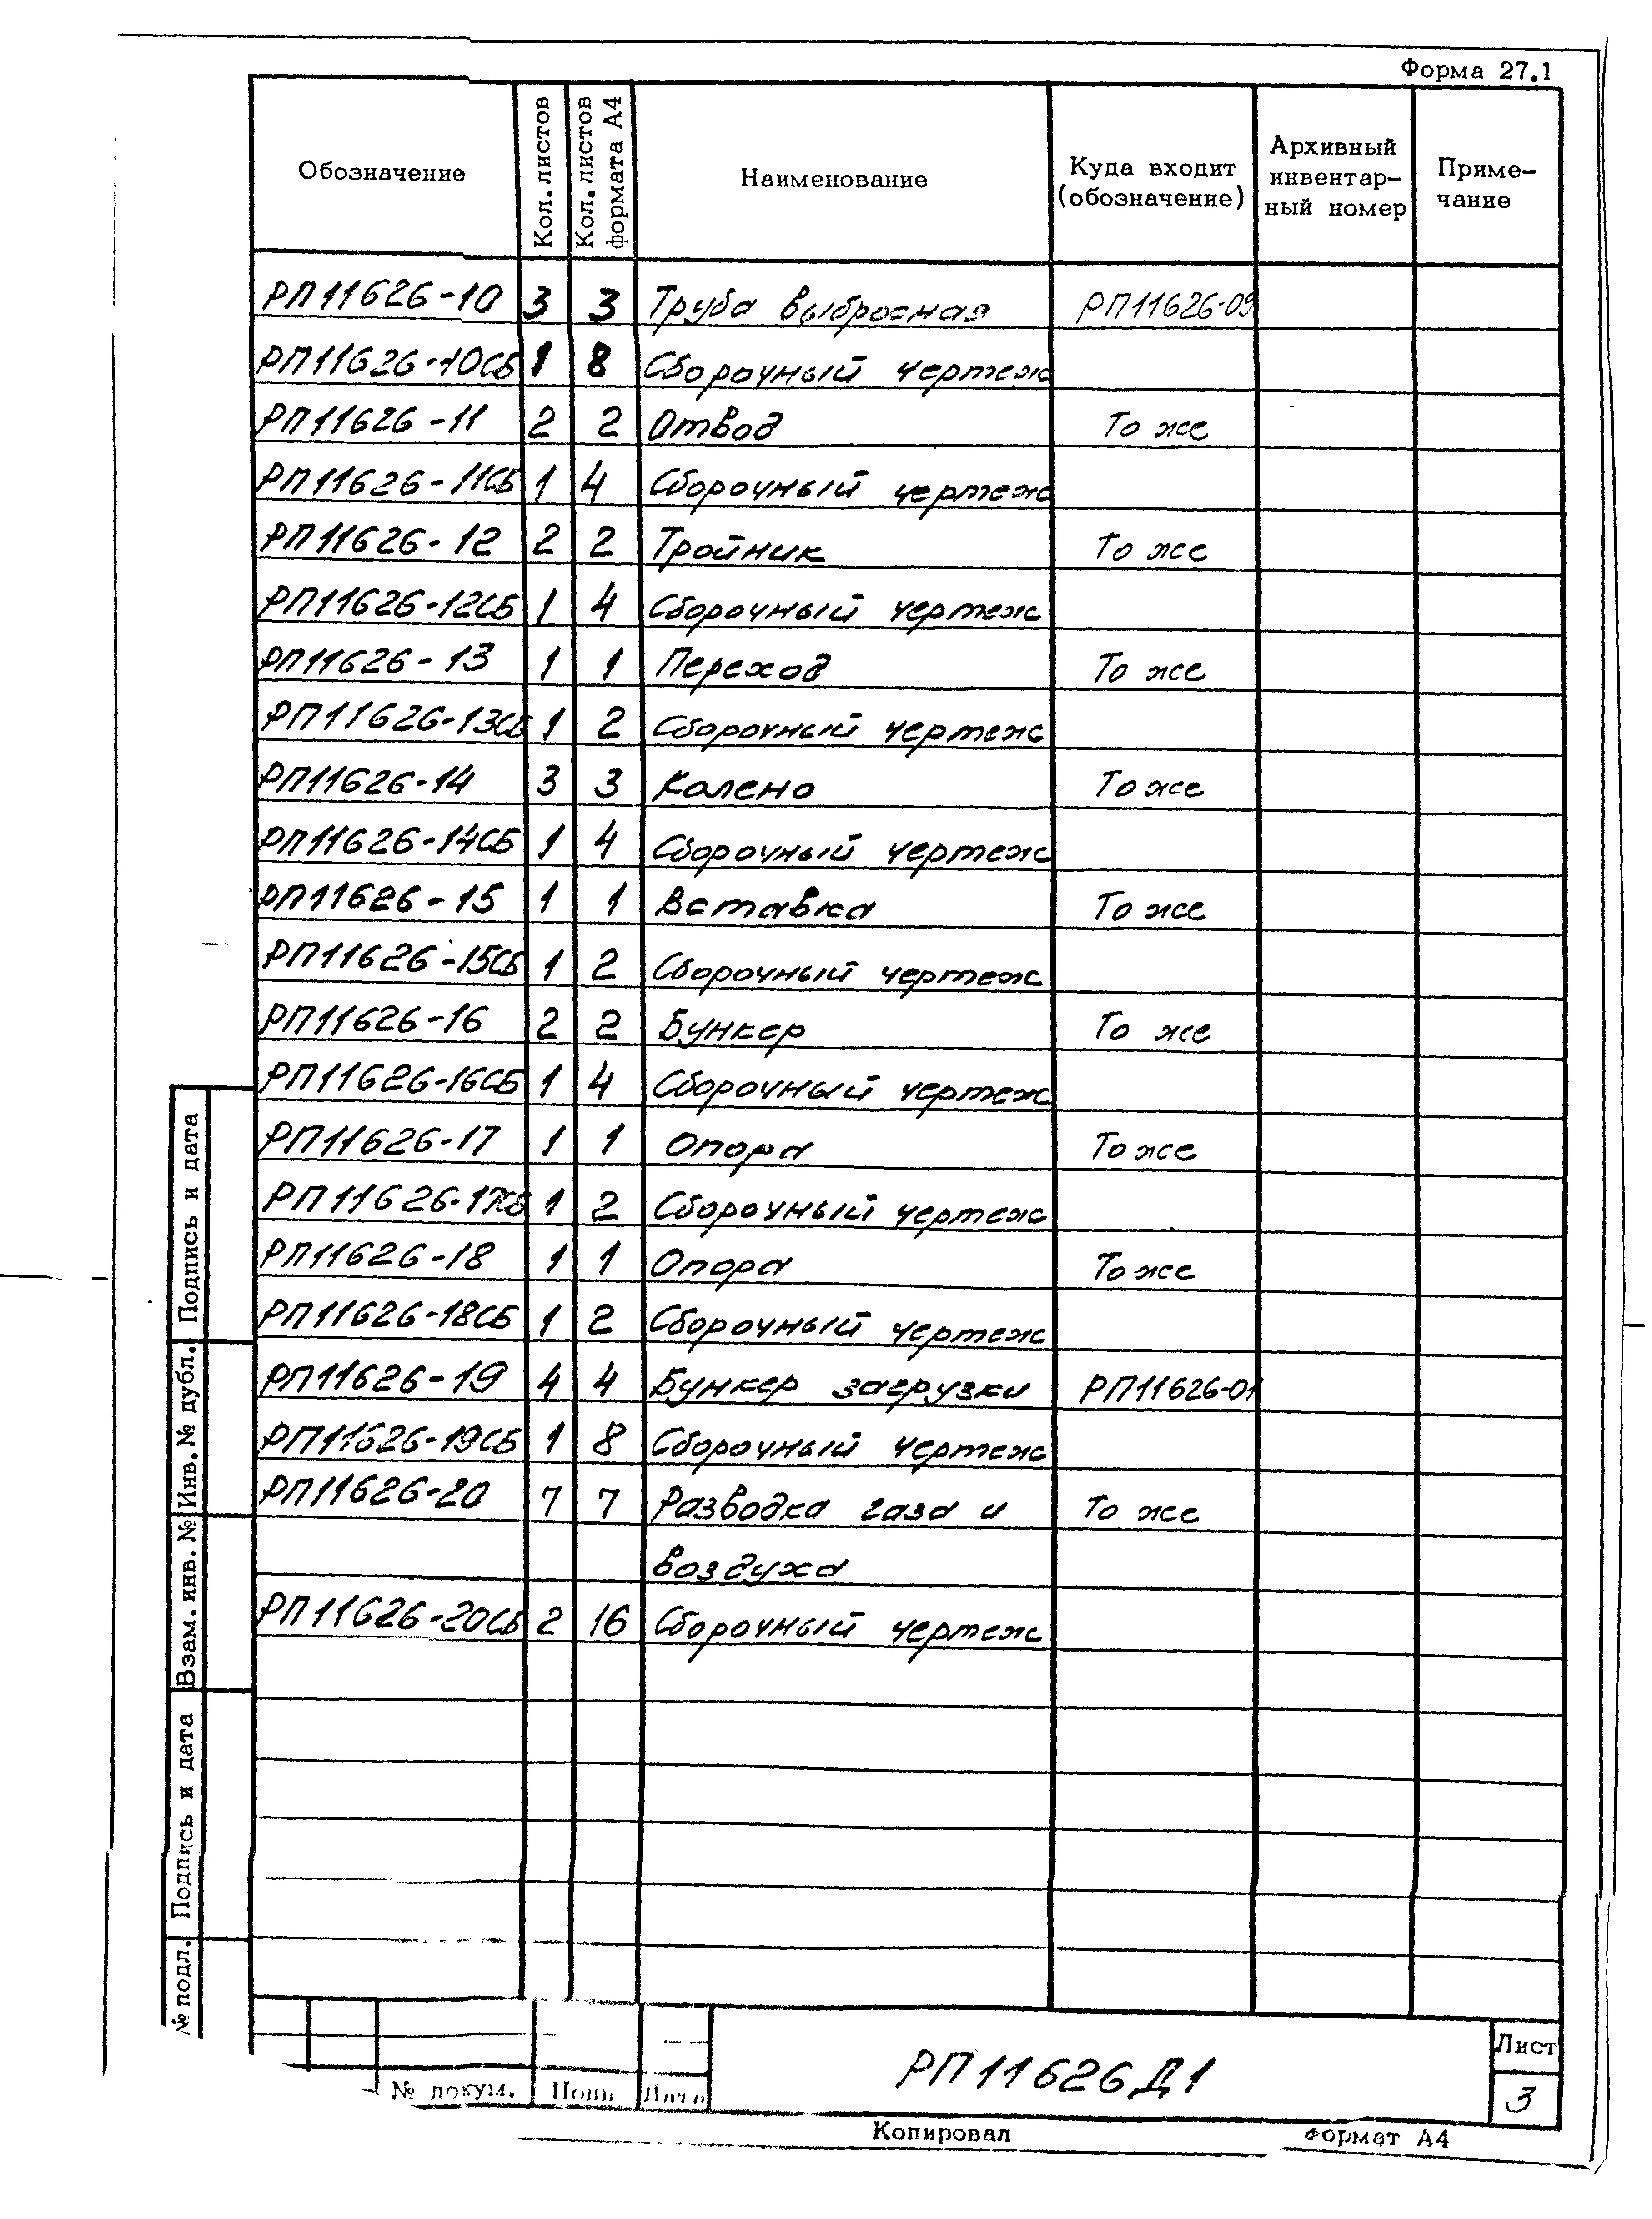 Форма 27.1
Обозначение Кол. листов Кол. листов формата А4 Наименование Куда входит (обозначение) Архивный инвентар- ный номер Приме- чание
РП11626-10 3 3 Труба выбросная РП11626-09
РП11626-10СБ 1 8 Сборочный чертеж
РП11626-11 2 2 Отвод То же
РП11626-11СБ 1 4 Сборочный чертеж
РП11626-12 2 2 Тройник То же
РП11626-12СБ 1 4 Сборочный чертеж
РП11626-13 1 1 Переход То же
РП11626-13СБ 1 2 Сборочный чертеж
РП11626-14 3 3 Колено То же
РП11626-14СБ 1 4 Сборочный чертеж
РП11626-15 1 1 Вставка То же
РП11626-15СБ 1 2 Сборочный чертеж
РП11626-16 2 2 Бункер То же
РП11626-16СБ 1 4 Сборочный чертеж
РП11626-17 1 1 Опора То же
РП11626-17СБ 1 2 Сборочный чертеж
РП11626-18 1 1 Опора То же
РП11626-18СБ 1 2 Сборочный чертеж
РП11626-19 4 4 Бункер загрузки РП11626-01
РП11626-19СБ 1 8 Сборочный чертеж
РП11626-20 7 7 Разводка газа и То же
воздуха
РП11626-20СБ 2 16 Сборочный чертеж
Подпись и дата
Инв. № дубл.
Взам. инв. №
Подпись и дата
№ подл.
№ докум. Подп. Дата
РП11626Д1
Лист
3
Копировал Формат А4